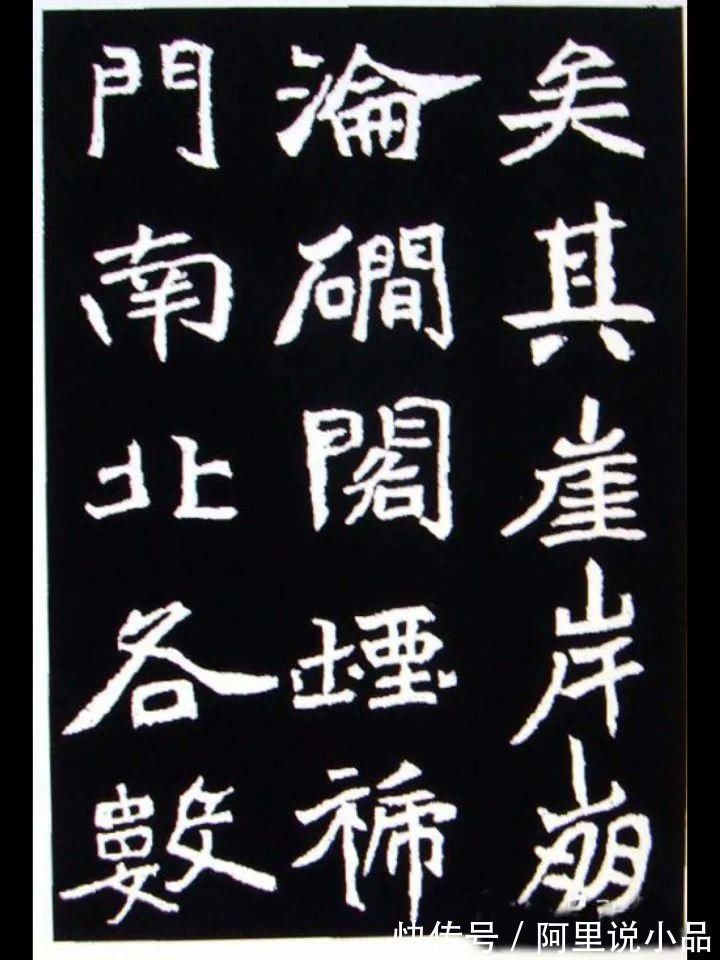 矣其崖岸崩
淪磵閣堙褫
門南北各數
快传号/阿里说小品